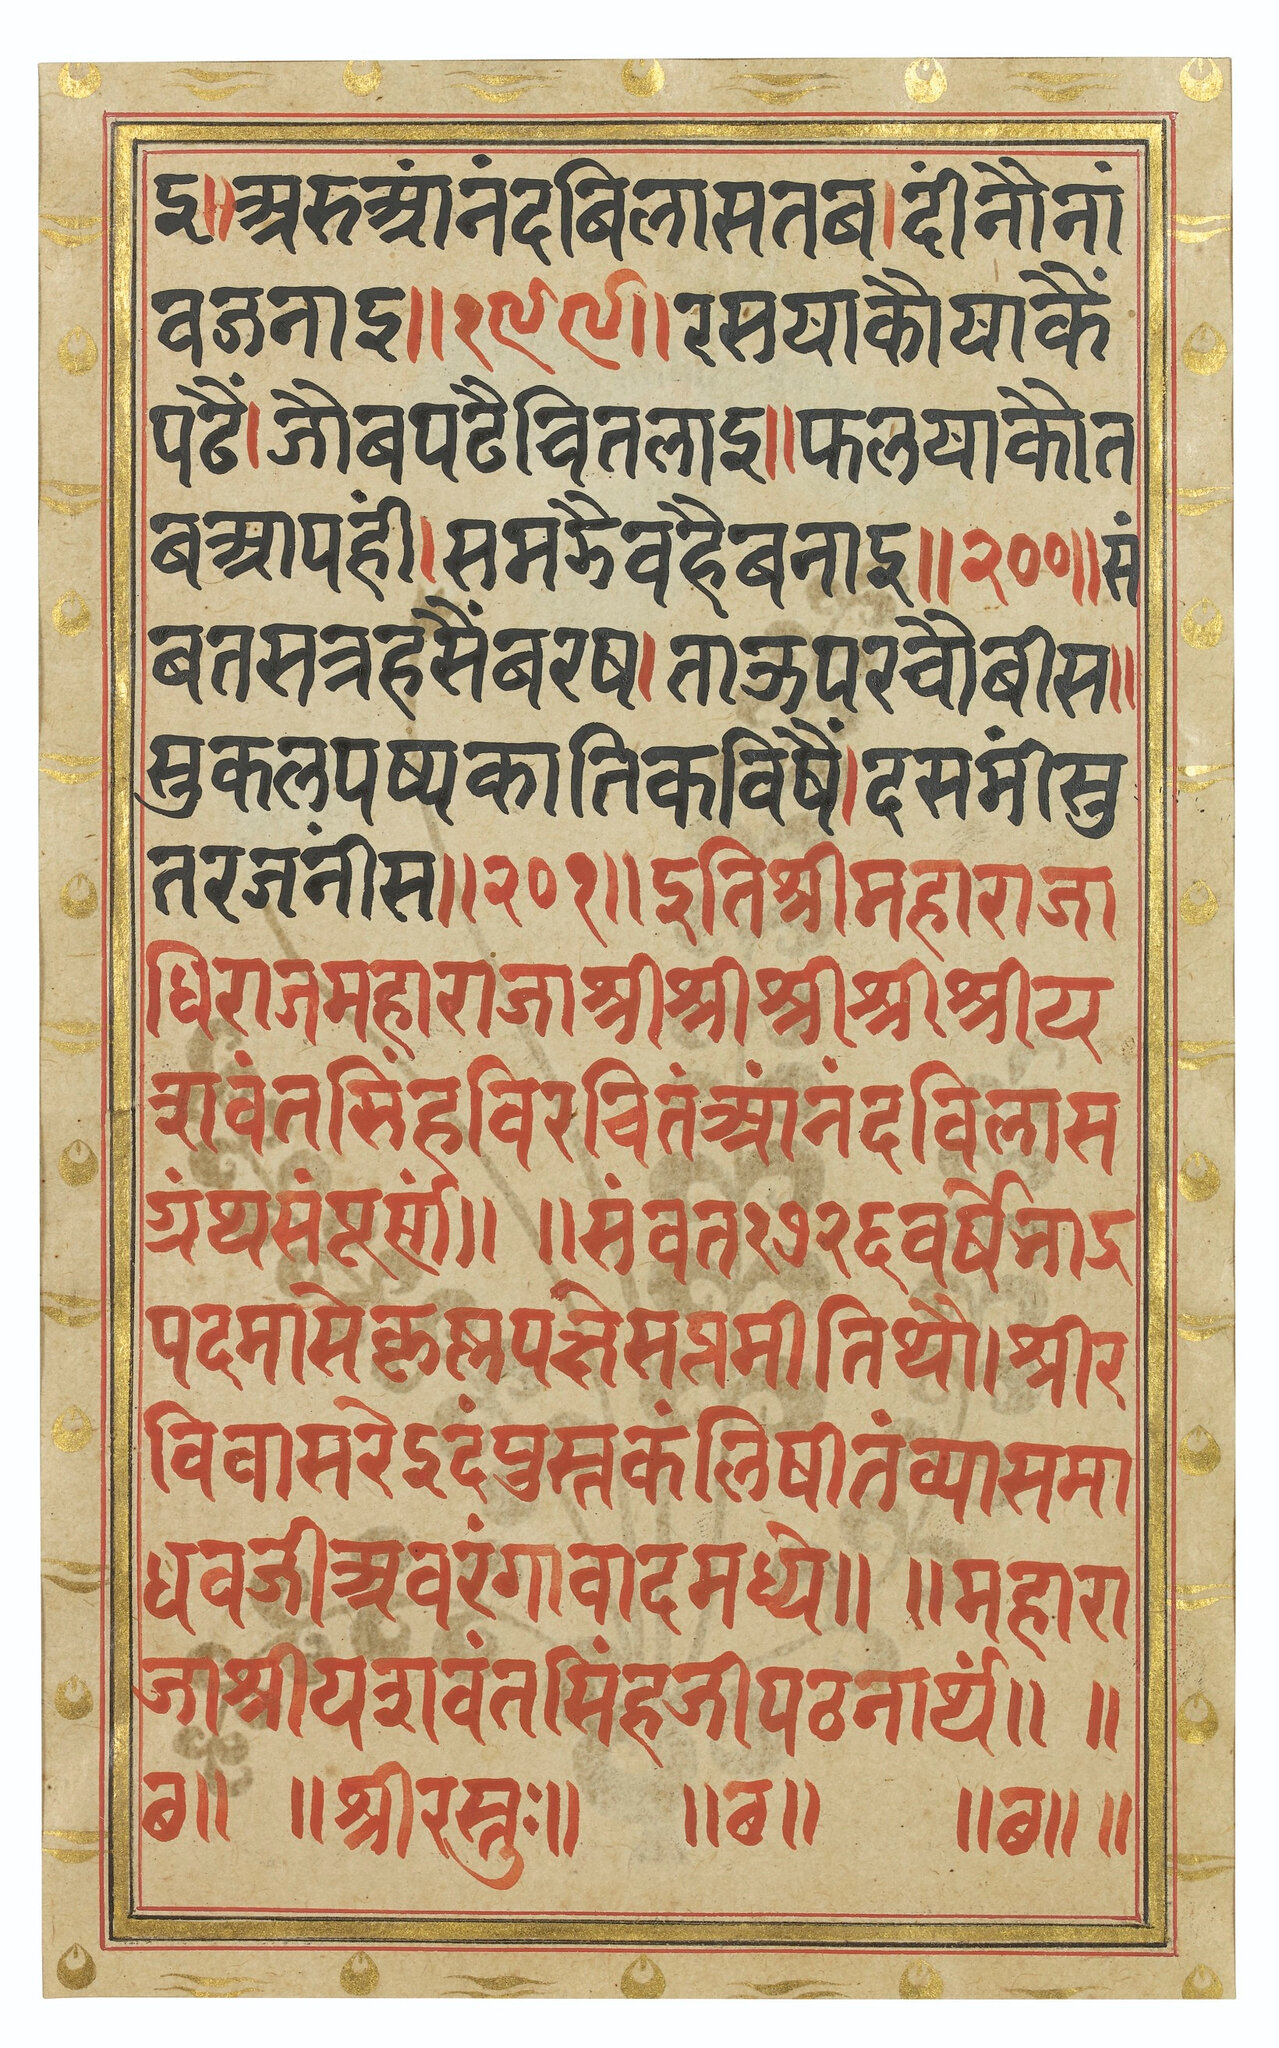 इ॥अरुआंनंदबिलासतब।दींनौनां
वजनाइ॥१९९॥रसयाकौयाकैं
पढैं।जौबपढैचितलाइ॥फलयाकौत
बआपहीं।समझैवहैबनाइ॥२००॥सं
बतसत्रहसैंबरष।ताऊपरचौबीस॥
सुकलपष्यकातिकविषैं।दसमींसु
तरजनींस॥२०१॥इतिश्रीमहाराजा
धिराजमहाराजाश्रीश्रीश्रीश्रीश्रीय
शवंतसिंहविरचितंआंनंदविलास
ग्रंथसंपूर्ण॥ ॥संवत१७२६वर्षेभाऽ
पदमासेकृष्णपक्षेसप्तमीतिथौ।श्रीर
विवासरेइदंपुस्तकंलिषीतंव्यासमा
धवजीअवरंगावादमध्ये॥ ॥महारा
जाश्रीयशवंतसिंहजीपठनार्थं॥ ॥
ब॥ ॥श्रीरस्तुः॥ ॥ब॥ ॥ब॥॥